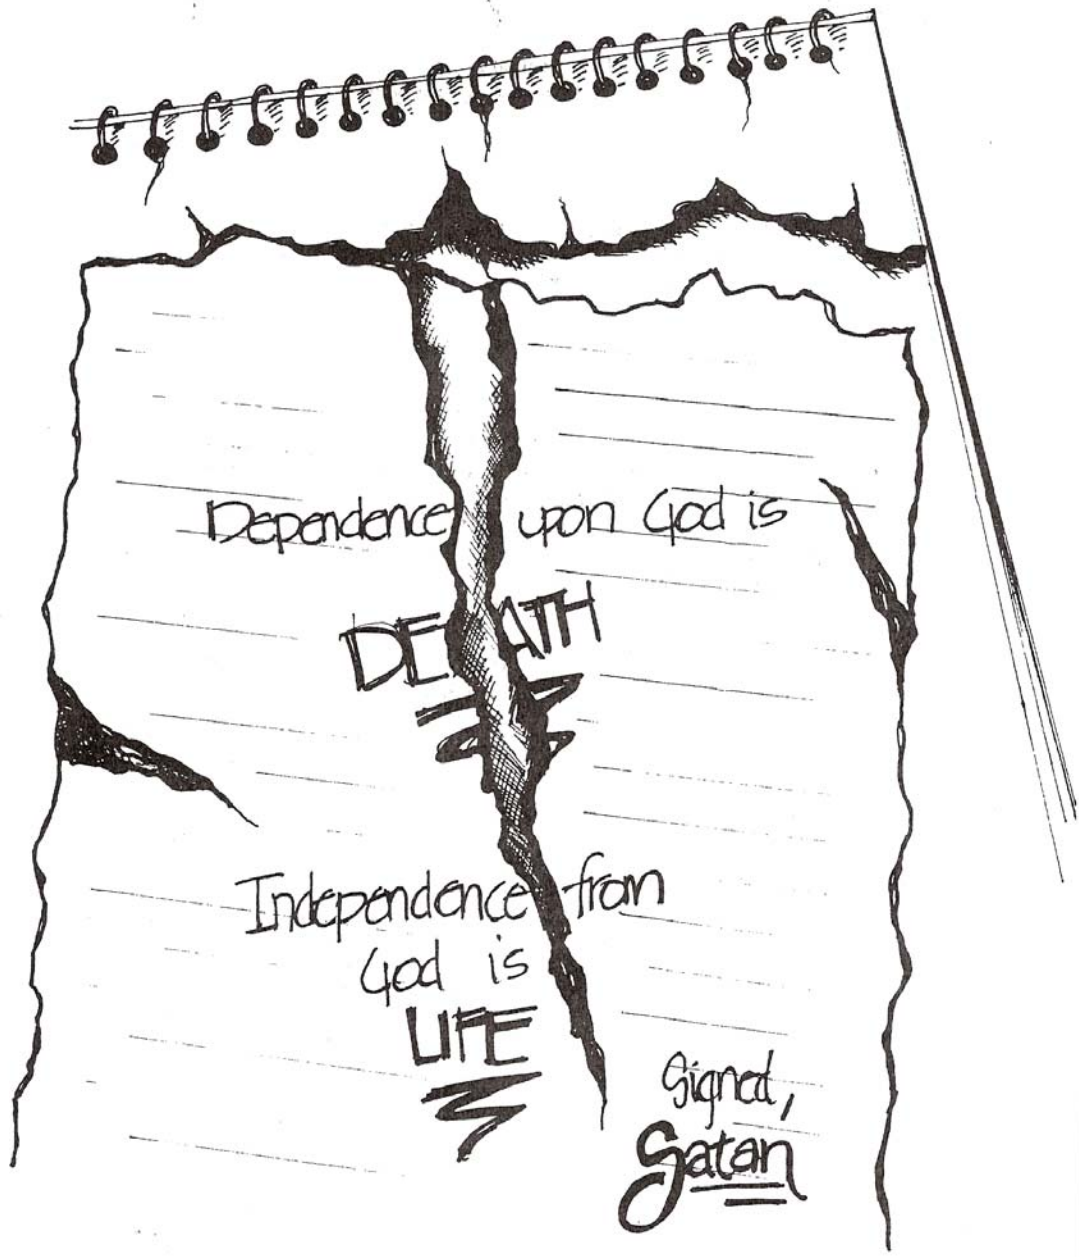 Dependence upon God is
DEATH
Independence from
God is
LIFE
Signed,
Satan